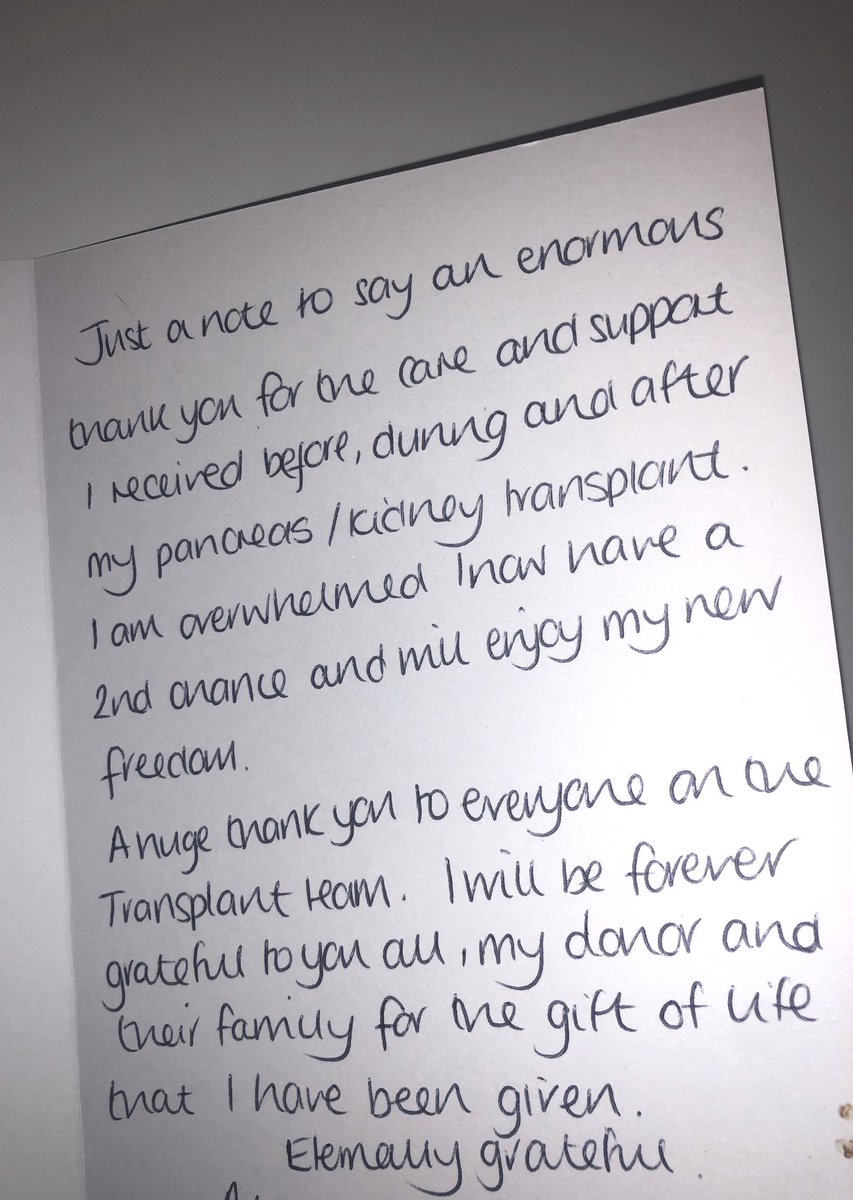 Just a note to say an enormous
thank you for the care and support
I received before, during and after
my pancreas/kidney transplant.
I am overwhelmed I now have a
2nd chance and will enjoy my new
freedom.
A huge thank you to everyone on the
Transplant team. I will be forever
grateful to you all, my donor and
their family for the gift of life
that I have been given.
Eternally grateful.